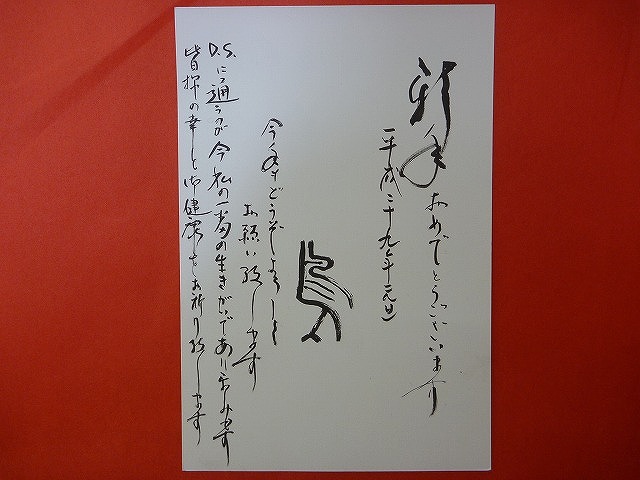 新年おめでとうございます
平成二十九年元旦
今年もどうぞよろしく
お願い致します
D.S.に通うのが今私の一番の生きがいであり楽しみです
皆様の幸と御健康をお祈り致します